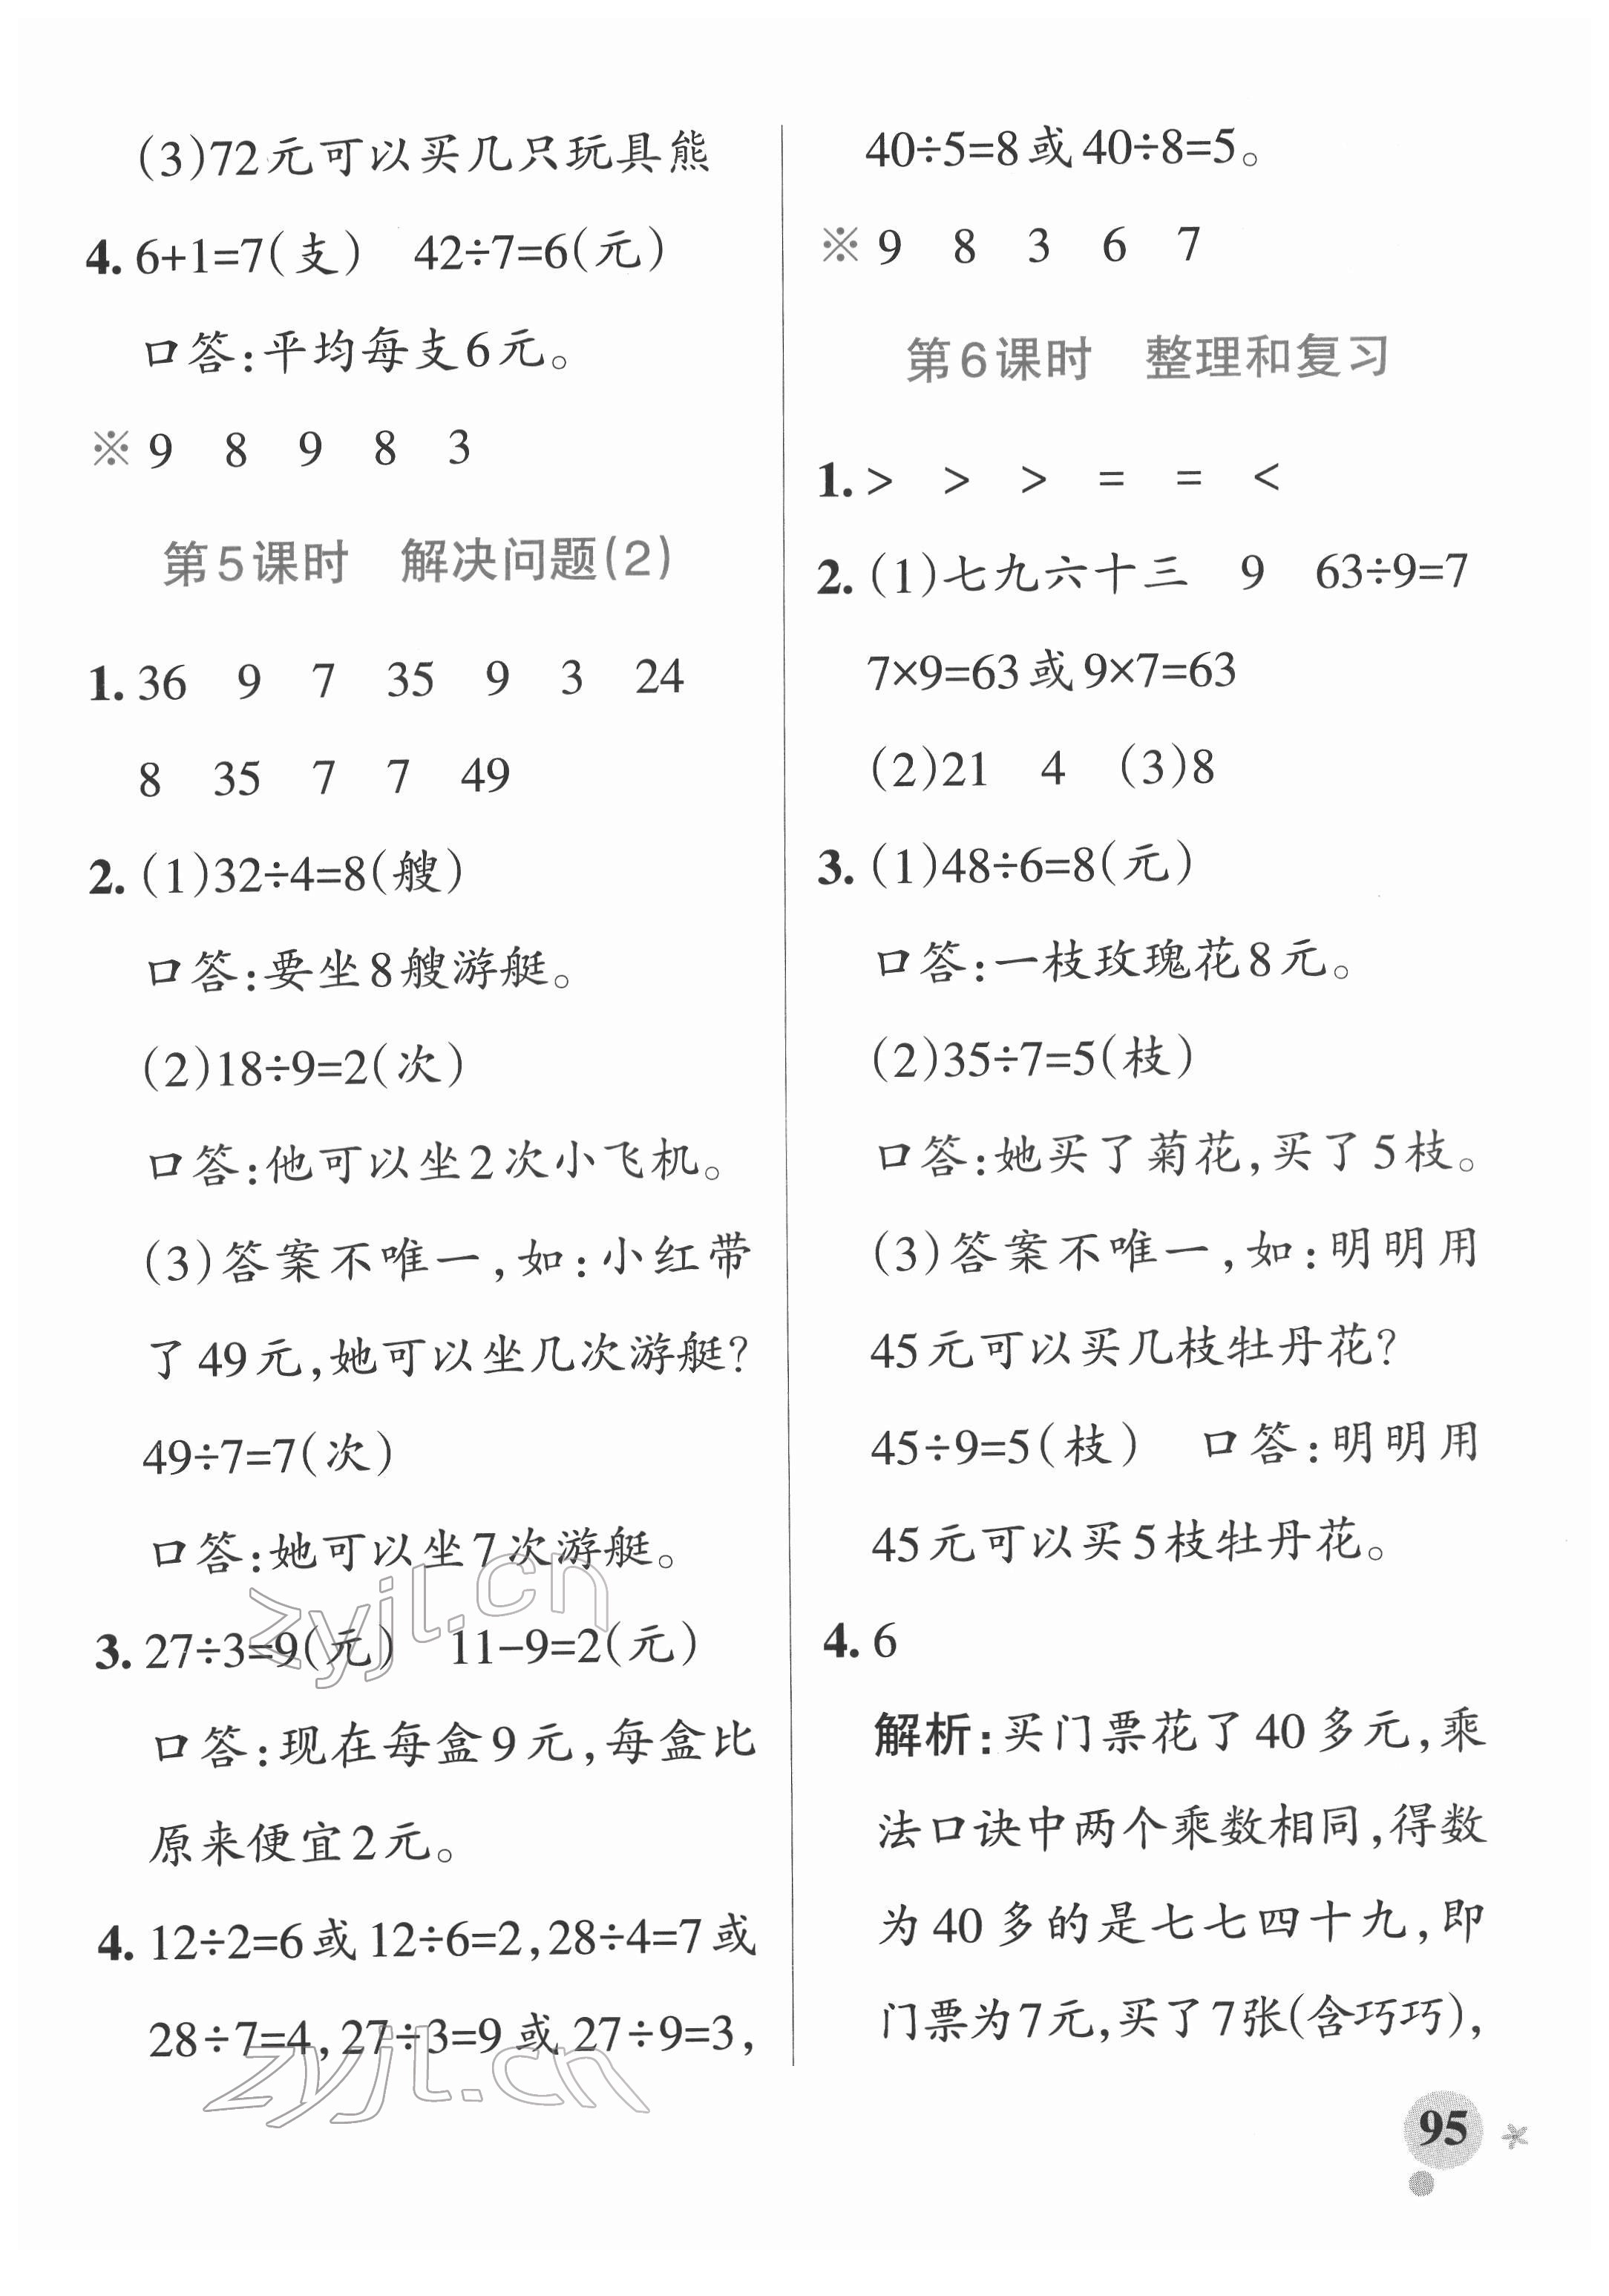 (3)72元可以买几只玩具熊
4. 6+1=7(支) 42÷7=6(元)
口答:平均每支6元。
※ 9 8 9 8 3
第5课时 解决问题(2)
1. 36 9 7 35 9 3 24
8 35 7 7 49
2. (1)32÷4=8(艘)
口答:要坐8艘游艇。
(2)18÷9=2(次)
口答:他可以坐2次小飞机。
(3)答案不唯一,如:小红带
了49元,她可以坐几次游艇?
49÷7=7(次)
口答:她可以坐7次游艇。
3. 27÷3=9(元) 11-9=2(元)
口答:现在每盒9元,每盒比
原来便宜2元。
4. 12÷2=6或12÷6=2,28÷4=7或
28÷7=4,27÷3=9或27÷9=3,
40÷5=8或40÷8=5。
※ 9 8 3 6 7
第6课时 整理和复习
1. > > > = = <
2. (1)七九六十三 9 63÷9=7
7×9=63或9×7=63
(2)21 4 (3)8
3. (1)48÷6=8(元)
口答:一枝玫瑰花8元。
(2)35÷7=5(枝)
口答:她买了菊花,买了5枝。
(3)答案不唯一,如:明明用
45元可以买几枝牡丹花?
45÷9=5(枝) 口答:明明用
45元可以买5枝牡丹花。
4. 6
解析:买门票花了40多元,乘
法口诀中两个乘数相同,得数
为40多的是七七四十九,即
门票为7元,买了7张(含巧巧),
95
zyjl.cn
zyjl.cn